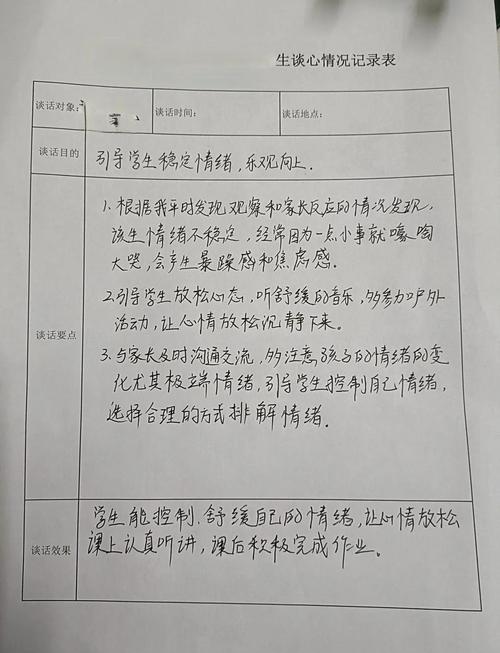 生谈心情况记录表
谈话对象: 谈话时间: 谈话地点:
谈话目的 引导学生稳定情绪,乐观向上.
谈话要点
1.根据我平时发现,观察和家长反应的情况发现,
该生情绪不稳定,经常因为一点小事就嚎啕
大哭,会产生暴躁感和焦虑感.
2.引导学生放松心态,听舒缓的音乐,多参加户外
活动,让心情放松沉静下来。
3.与家长及时沟通交流,多注意孩子的情绪的变
化尤其极端情绪,引导学生控制自己情绪,
选择合理的方式排解情绪.
谈话效果
学生能控制、舒缓自己的情绪,让心情放松
课上认真听讲,课后积极完成作业。